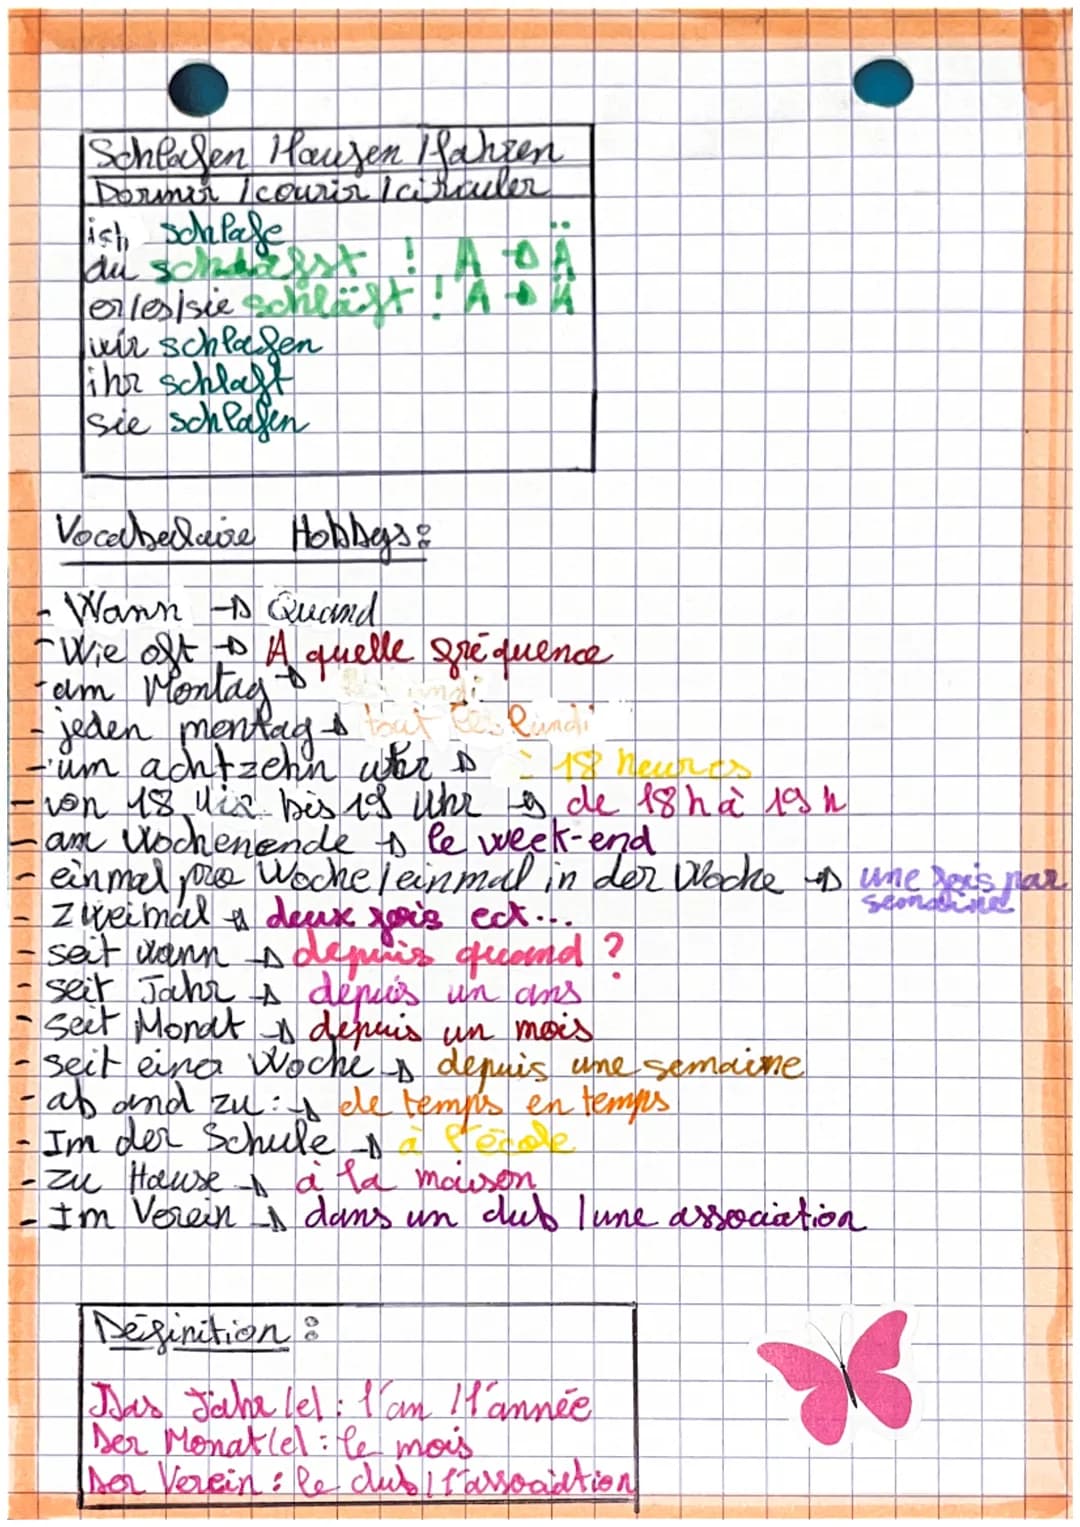 Schlafen / laufen / fahren
Dormir / courir / circuler
ich schlafe
du schläfst ! A → Ä
er/es/sie schläft ! A → Ä
wir schlafen
ihr schlaft
sie schlafen
Vocabulaire Hobbys:
- Wann → Quand
- Wie oft → A quelle fréquence
- am Montag →
- jeden montag → tout les lundi
- um achtzehn uhr → à 18 heures
- von 18 bis 19 Uhr → de 18h à 19h
- am Wochenende → le week-end
- einmal pro Woche / einmal in der Woche → une fois par
semaine
- Zweimal → deux fois ect...
- seit wann → depuis quand ?
- seit Jahr → depuis un ans
- seit Monat → depuis un mois
- seit einer Woche → depuis une semaine
- ab and zu : → de temps en temps
- Im der Schule → à l'école
- zu Hause → à la maison
- Im Verein → dans un club / une association
Définition :
Das Jahr (e) : l'an / l'année
Der Monat (e) : le mois
Der Verein : le club / l'association